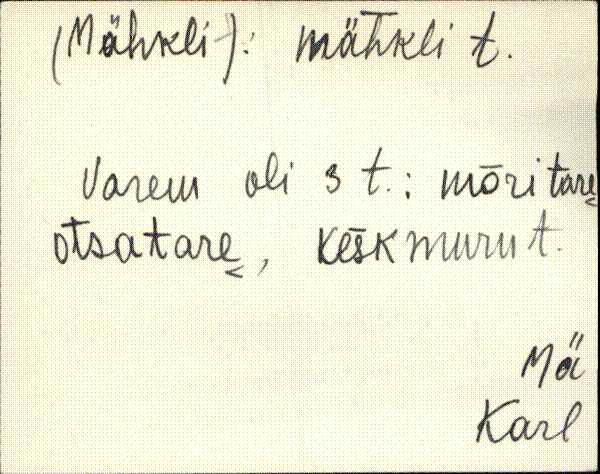 (Mähkli): mähkli t.
Varem oli 3 t.: mōri tare
otsatare, keškmuru t.
Mä
Karl